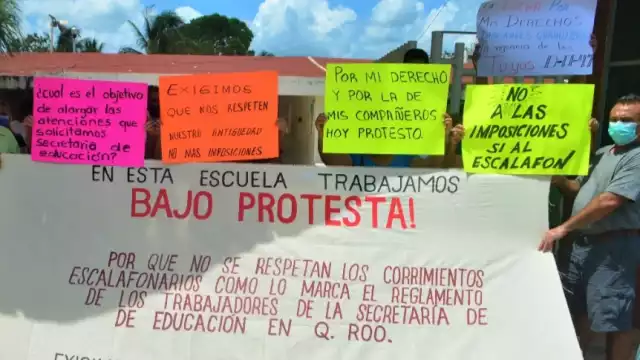 ¿cual es el objetivo
de alargar las
atenciones que
solicitamos
secretaria de
educación?
EXIGIMOS
QUE NOS RESPETEN
NUESTRO ANTIGUEDAD
NO MAS IMPOSICIONES
POR MI DERECHO
Y POR LA DE
MIS COMPAÑEROS
HOY PROTESTO.
POR
MI DERECHO
NO
A LAS
IMPOSICIONES
SI AL
ESCALAFON
EN ESTA ESCUELA TRABAJAMOS
BAJO PROTESTA!
POR QUE NO SE RESPETAN LOS CORRIMIENTOS
ESCALAFONARIOS COMO LO MARCA EL REGLAMENTO
DE LOS TRABAJADORES DE LA SECRETARIA DE
DE EDUCACIÓN EN Q. ROO.